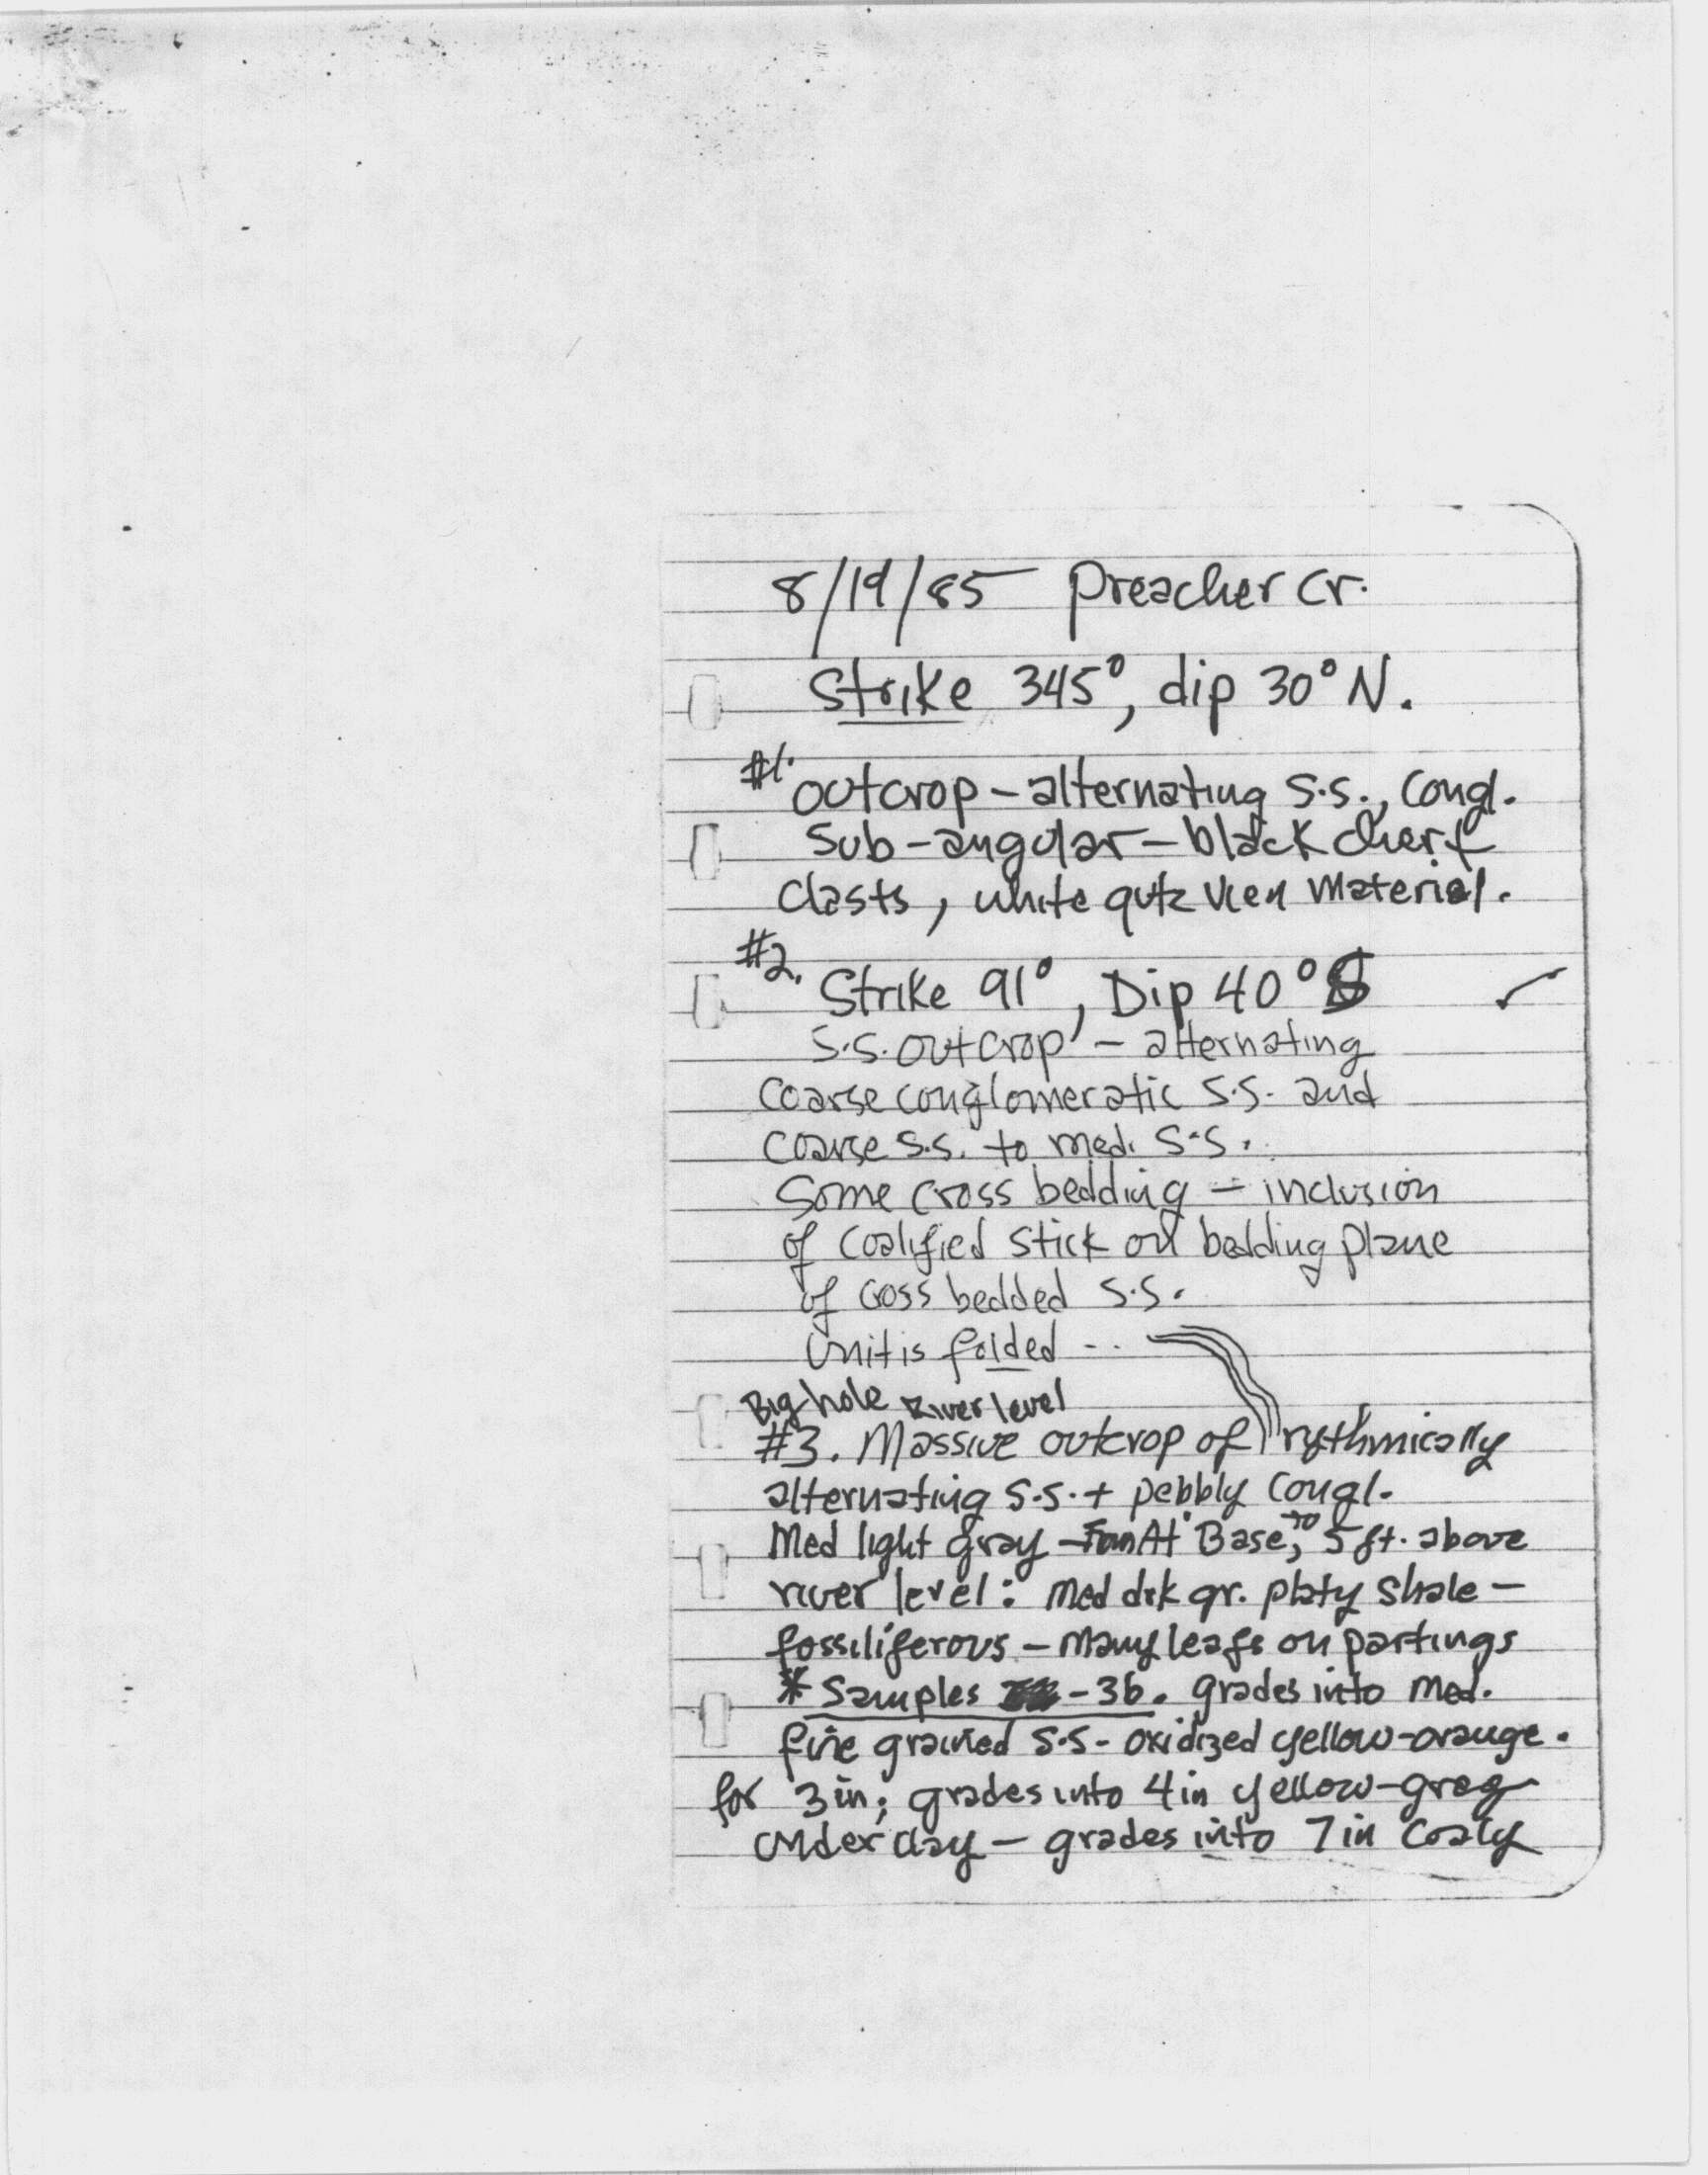 8/19/85 Preacher Cr.
Strike 345°, dip 30° N.
#1. outcrop - alternating s.s., congl.
sub-angular - black chert
clasts, white qutz vien material.
#2. Strike 91°, Dip 40° S
s.s. outcrop - alternating
coarse conglomeratic s.s. and
coarse s.s. to med. s.s.
some cross bedding - inclusion
of coalified stick on bedding plane
of coss bedded s.s.
Unit is folded - ..
Big hole River level
#3. Massive outcrop of rythmically
alternating s.s. + pebbly congl.
Med light gray - At Base, to 5 ft. above
river level: Med drk gr. platy shale -
fossiliferous - Many leafs on partings
* Samples -3b. grades into med.
fine grained s.s - oxidized yellow-orange.
for 3 in; grades into 4 in yellow-gray
under clay - grades into 7 in coaly